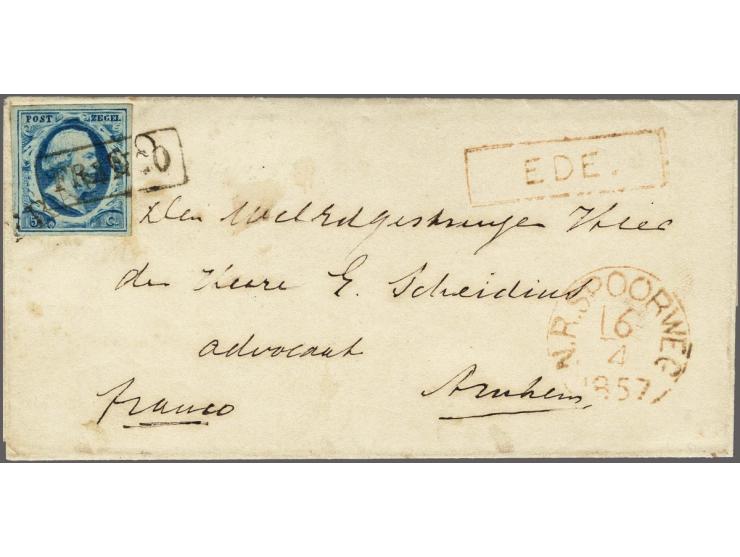 POST ZEGEL
FRANCO
5 C.
EDE.
Den Weledgestrenge Heer
den Heere E. Scheidius
advocaat
franco Arnhem
N.R.SPOORWEG
16
4
1857